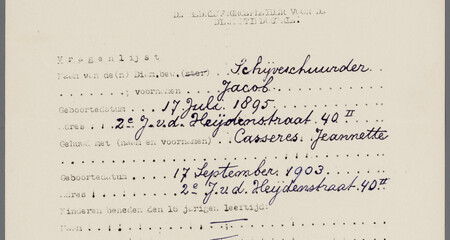 Vragenlijst
Naam van de(n) Dien.bew.(ster) Schijveschuurder
; voornamen Jacob.
Geboortedatum 17 Juli 1895
Adres 2e J.v.d. Heijdenstraat 40 II
Gehuwd met (naam en voornamen) Casseres. Jeannette
Geboortedatum 17 September 1903
Adres 2e J.v.d. Heijdenstraat 40 II
Kinderen beneden den 16 jarigen leeftijd.
Naam